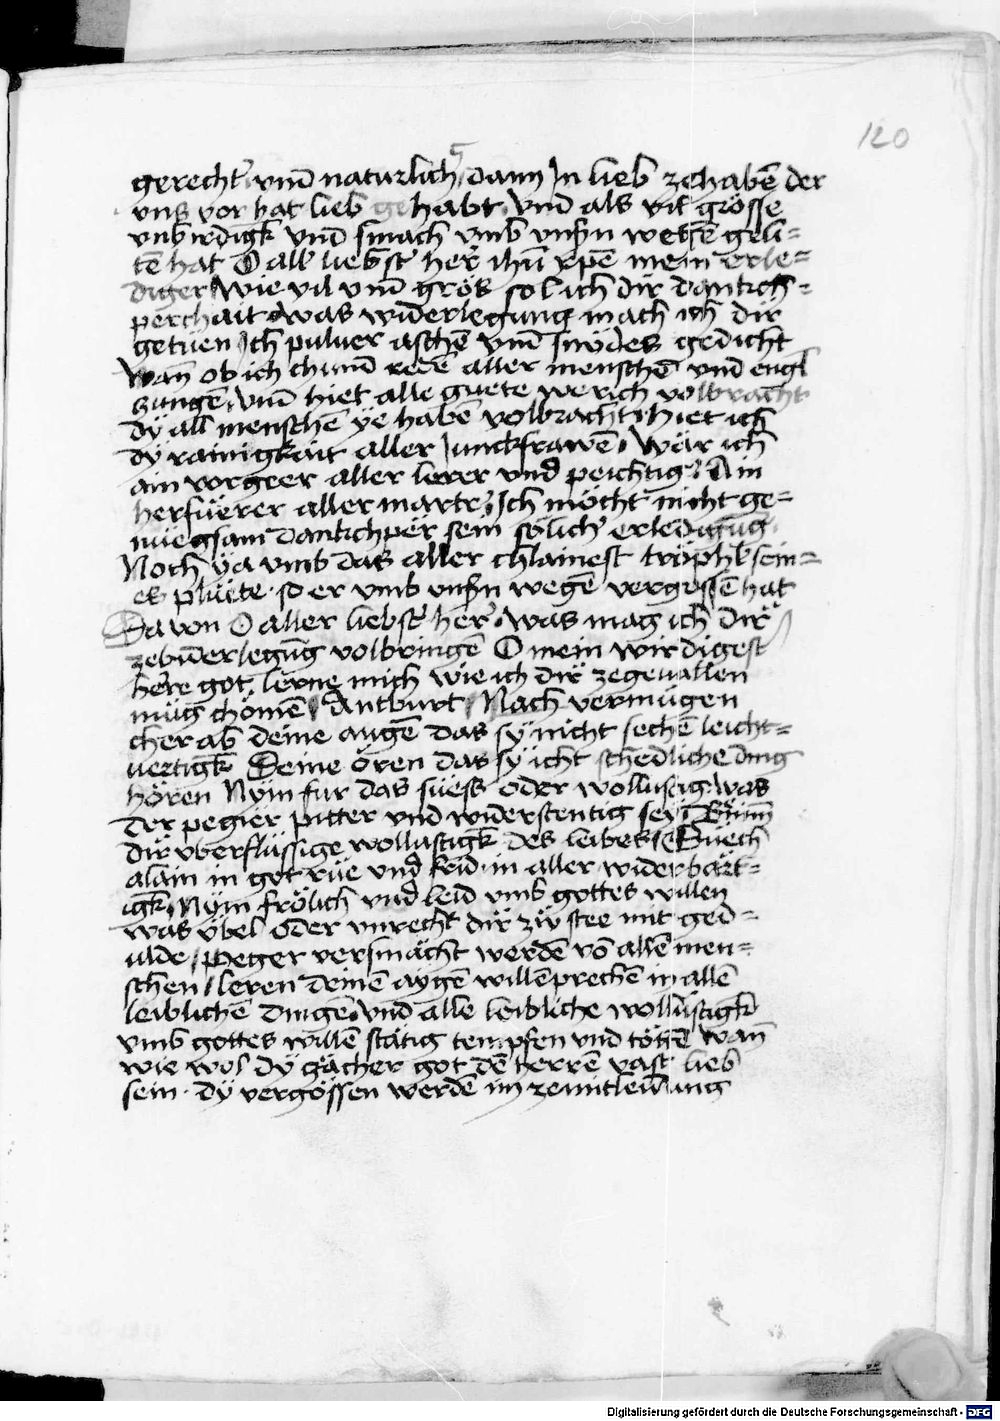 120
gerecht' vnd̄ naturlich' dann In lieb zehabē der
vns vor hat lieb gehabt Vnd̄ als vil grösse
vnbirdigk̄ Vnd̄ smach vmb vnsn̄ wegē geli=
tē hat O all' liebst' her' ihū xp̄e mein erle=
diger Wie vil vnd̄ grös sol ich dir danckch=
perchait was widerlegung mach ich dir
getuen Ich puluer aschē vnd̄ snödes gedicht
Wan̄ ob ich chund̄ redē aller menschē vnd engl
zungē vnd̄ hiet alle guete werich volbracht
dÿ all menschē ÿe habē volbracht hiet ich
dÿ rainigkait aller Junckfrawē Wär ich
ain vorgeer aller lerer vnd peichtig' Ain
herfüerer aller martr' Ich möcht nicht ge=
nüegsam danckchper sein sölich' erledigūg
Noch ÿa vmb das aller chlainest tröphl sein=
es plüete so er vmb vnsn̄ wegē vergossē hat
Da von O aller liebst' her' was mag ich dir
zebid̄erlegūg volbringē O mein wirdigest
here got lerne mich wie ich dir zegeuallen
müg chömē Antburt Nach vermügen
cher ab deine augē das sÿ nicht sechē leicht=
uertigk̄ Deine oren das sÿ icht schedliche ding
hören Nÿm fur das süess oder wollustig was
der pegier pitter vnd widerstentig seÿ
dir vberflüssige wollustigk̄ des leibes Suech
alain in got rüe vnd frid in aller widerbärt=
igk̄ Nÿm frölich vnd leid vmb gottes willen
was übel oder vnrecht dir zü stee mit ged=
ulde Peger versmächt werdē vō allē men=
schen leren deinē aygē willē prechē in allē
leiblichē dingē vnd alle leibliche wollustigk̄
vmb gottes willē stätig tempfen vnd tötē Wan̄
wie wol dÿ zächer got dē herrē vast lieb
sein dÿ vergössen werdē in zemitleidung
Digitalisierung gefördert durch die Deutsche Forschungsgemeinschaft - DFG